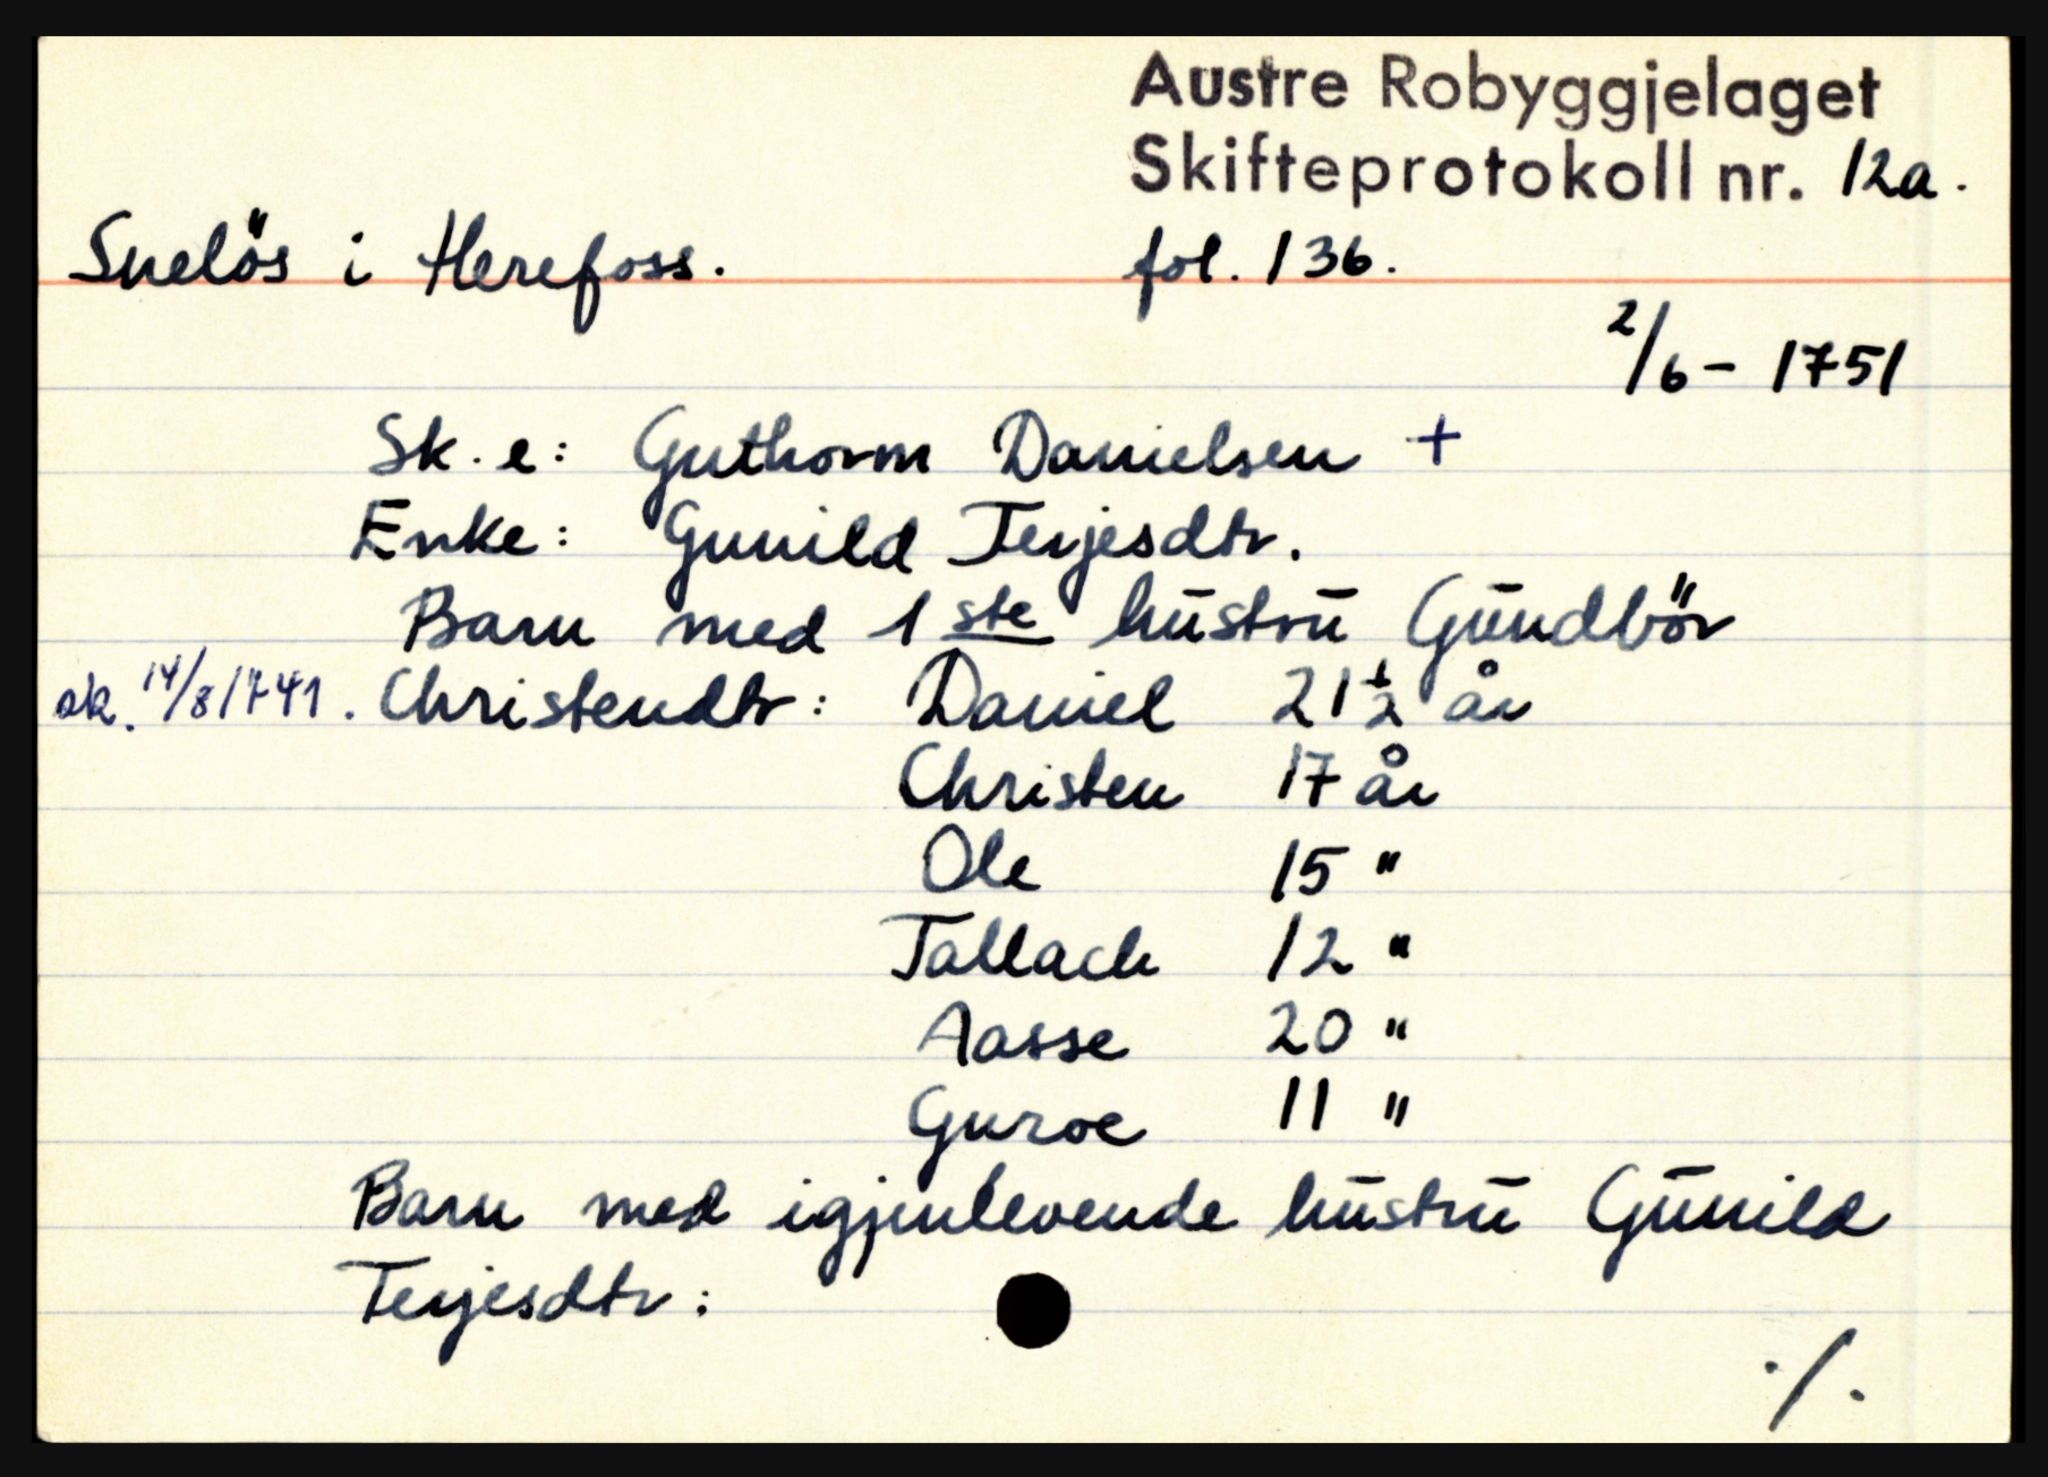 Austre Robyggjelaget
Skifteprotokoll nr. 12a.
Snelös i Herefoss. fol. 136.
2/6 - 1751
Sk. e: Guthorm Danielsen +
Enke: Gunild Terjesdtr.
Barn med 1ste hūstrū Gūndbör
sk. 14/8 1741. Christendtr: Daniel 21 1/2 år
Christen 17 år
Ole 15 "
Tallach 12 "
Aasse 20 "
Guroe 11 "
Barn med igjenlevende hūstrū Gūnild
Terjesdtr:
./.